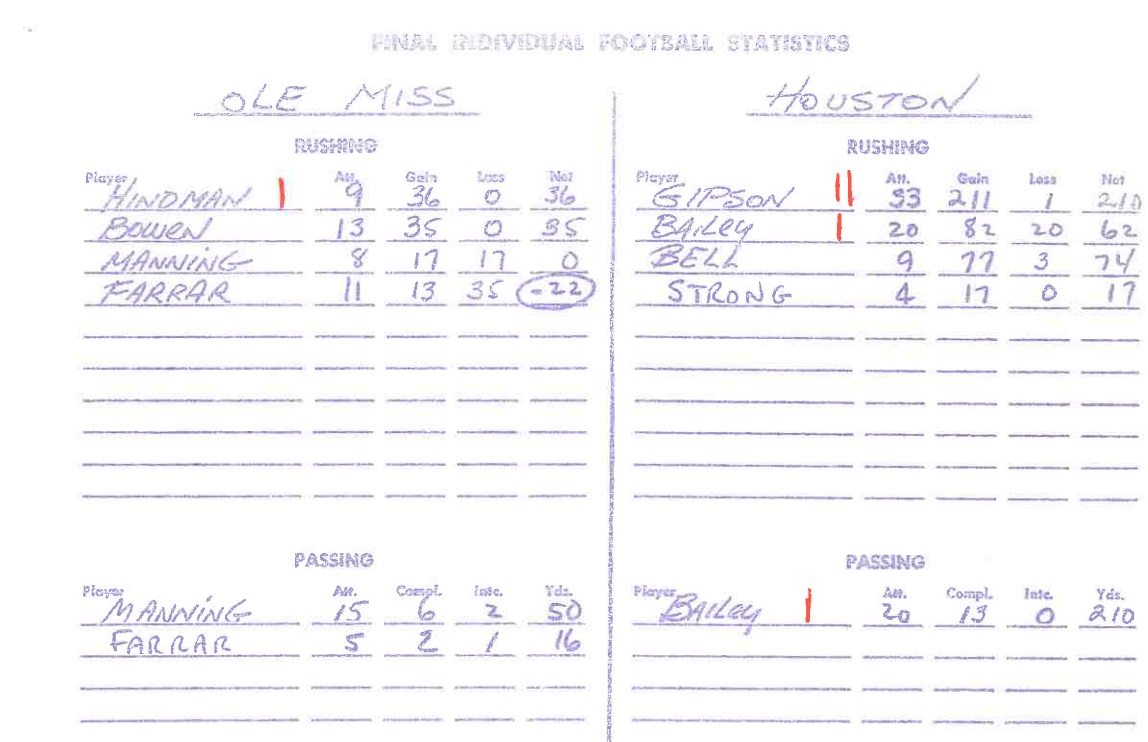 FINAL INDIVIDUAL FOOTBALL STATISTICS
OLE MISS
RUSHING
Player Att. Gain Loss Net
HINDMAN | 9 36 0 36
BOWEN 13 35 0 35
MANNING 8 17 17 0
FARRAR 11 13 35 -22
PASSING
Player Att. Compl. Intc. Yds.
MANNING 15 6 2 50
FARRAR 5 2 1 16
HOUSTON
RUSHING
Player Att. Gain Loss Net
GIPSON || 33 211 1 210
BAILEY | 20 82 20 62
BELL 9 77 3 74
STRONG 4 17 0 17
PASSING
Player Att. Compl. Intc. Yds.
BAILEY | 20 13 0 210